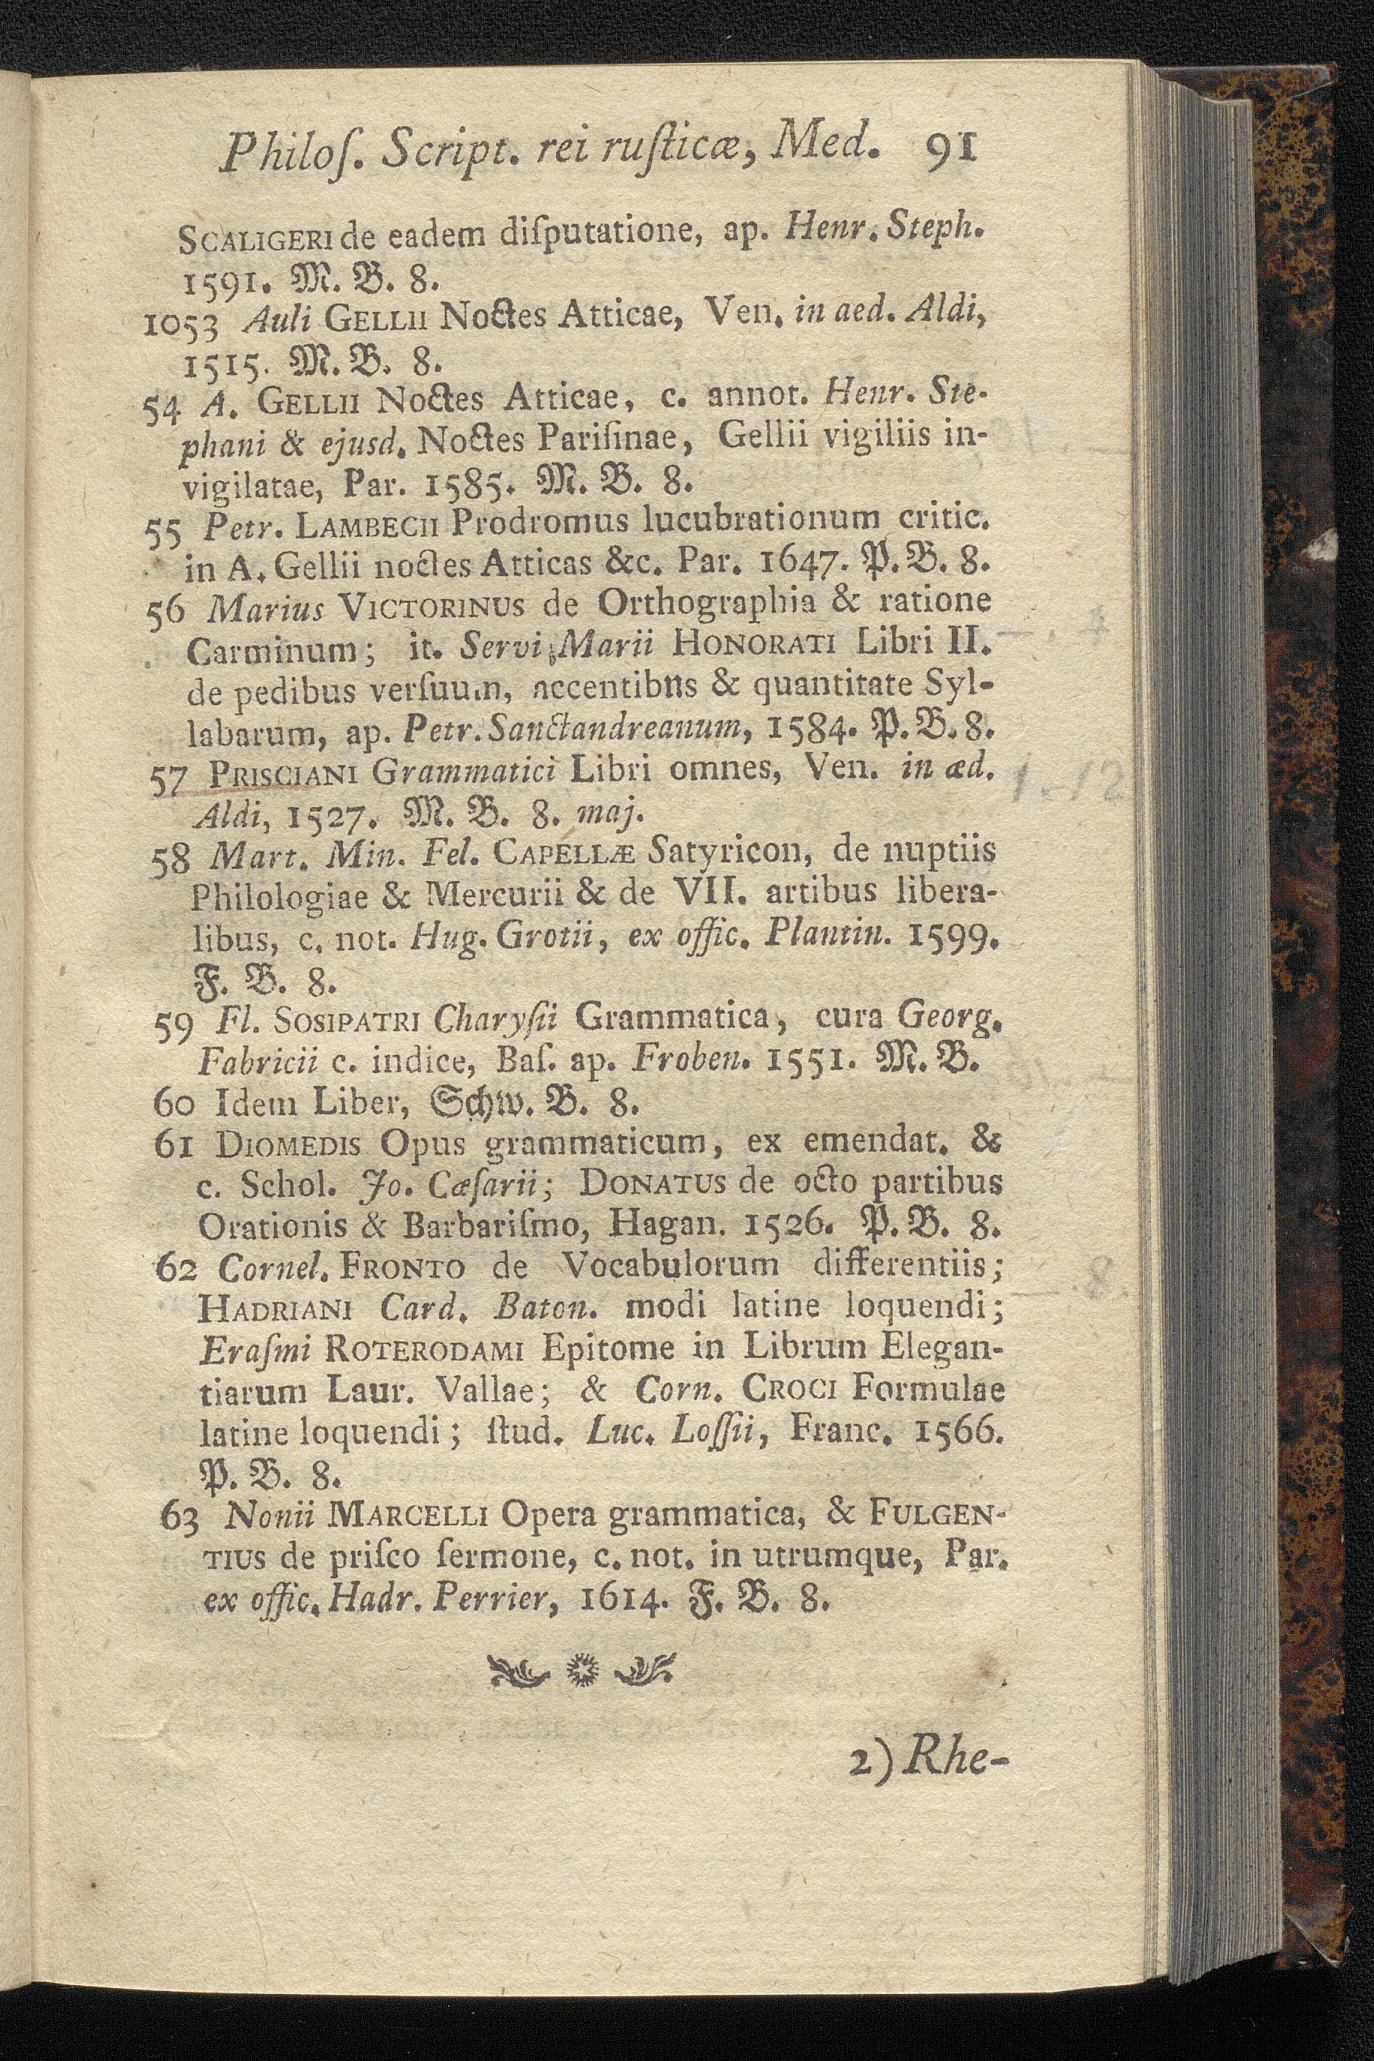 Philoſ. Script. rei ruſticæ, Med. 91
SCALIGERI de eadem diſputatione, ap. Henr. Steph.
1591. M. B. 8.
1053 Auli GELLII Noctes Atticae, Ven. in aed. Aldi,
1515. M. B. 8.
54 A. GELLII Noctes Atticae, c. annot. Henr. Ste-
phani & ejusd. Noctes Pariſinae, Gellii vigiliis in-
vigilatae, Par. 1585. M. B. 8.
55 Petr. LAMBECII Prodromus lucubrationum critic.
in A. Gellii noctes Atticas &c. Par. 1647. P. B. 8.
56 Marius VICTORINUS de Orthographia & ratione
Carminum; it. Servi Marii HONORATI Libri II.
de pedibus verſuum, accentibus & quantitate Syl-
labarum, ap. Petr. Sanctandreanum, 1584. P. B. 8.
57 PRISCIANI Grammatici Libri omnes, Ven. in æd.
1.12
Aldi, 1527. M. B. 8. maj.
58 Mart. Min. Fel. CAPELLÆ Satyricon, de nuptiis
Philologiae & Mercurii & de VII. artibus libera-
libus, c. not. Hug. Grotii, ex offic. Plantin. 1599.
F. B. 8.
59 Fl. SOSIPATRI Charyſii Grammatica, cura Georg.
Fabricii c. indice, Baſ. ap. Froben. 1551. M. B.
60 Idem Liber, Schw. B. 8.
61 DIOMEDIS Opus grammaticum, ex emendat. &
c. Schol. Jo. Cæſarii; DONATUS de octo partibus
Orationis & Barbariſmo, Hagan. 1526. P. B. 8.
62 Cornel. FRONTO de Vocabulorum differentiis;
— .8.
HADRIANI Card. Baton. modi latine loquendi;
Eraſmi ROTERODAMI Epitome in Librum Elegan-
tiarum Laur. Vallae; & Corn. CROCI Formulae
latine loquendi; ſtud. Luc. Loſſii, Franc. 1566.
P. B. 8.
63 Nonii MARCELLI Opera grammatica, & FULGEN-
TIUS de priſco ſermone, c. not. in utrumque, Par.
ex offic. Hadr. Perrier, 1614. F. B. 8.
2) Rhe-